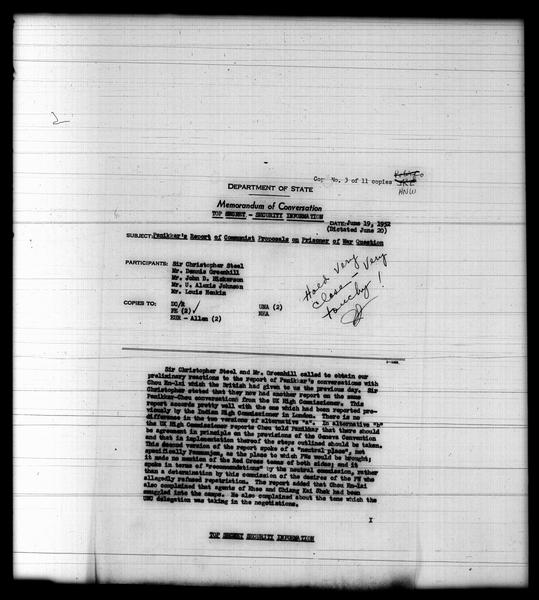 2
Copy No. 3 of 11 copies
JRL
HNW
DEPARTMENT OF STATE
Memorandum of Conversation
TOP SECRET - SECURITY INFORMATION
DATE: June 19, 1952
(Dictated June 20)
SUBJECT: Panikkar's Report of Communist Proposals on Prisoner of War Question
Hold very
close - very
touchy!
PARTICIPANTS: Sir Christopher Steel
Mr. Dennis Greenhill
Mr. John D. Hickerson
Mr. U. Alexis Johnson
Mr. Louis Henkin
COPIES TO:
FE (2) ✓
EUR - Allen (2)
UNA (2)
NEA
Sir Christopher Steel and Mr. Greenhill called to obtain our
preliminary reactions to the report of Panikkar's conversations with
Chou En-lai which the British had given to us the previous day. Sir
Christopher stated that they now had another report on the same
Panikkar-Chou conversations from the UK High Commissioner. This
report accords pretty well with the one which had been reported pre-
viously by the Indian High Commissioner in London. There is no
difference in the two versions of alternative "a". In alternative "b"
the UK High Commissioner reports Chou told Panikkar that there should
be agreement in principle on the provisions of the Geneva Convention
and that in implementation thereof the steps outlined should be taken.
This second version of the report spoke of a "neutral place", not
specifically Panmunjom, as the place to which PWs would be brought;
it made no mention of the Red Cross teams of both sides; and it
spoke in terms of "recommendations" by the neutral commission, rather
than a determination by this commission of the desires of the PW who
allegedly refused repatriation. The report added that Chou En-lai
also complained that agents of Rhee and Chiang Kai Shek had been
smuggled into the camps. He also complained about the tone which the
UNC delegation was taking in the negotiations.
TOP SECRET SECURITY INFORMATION